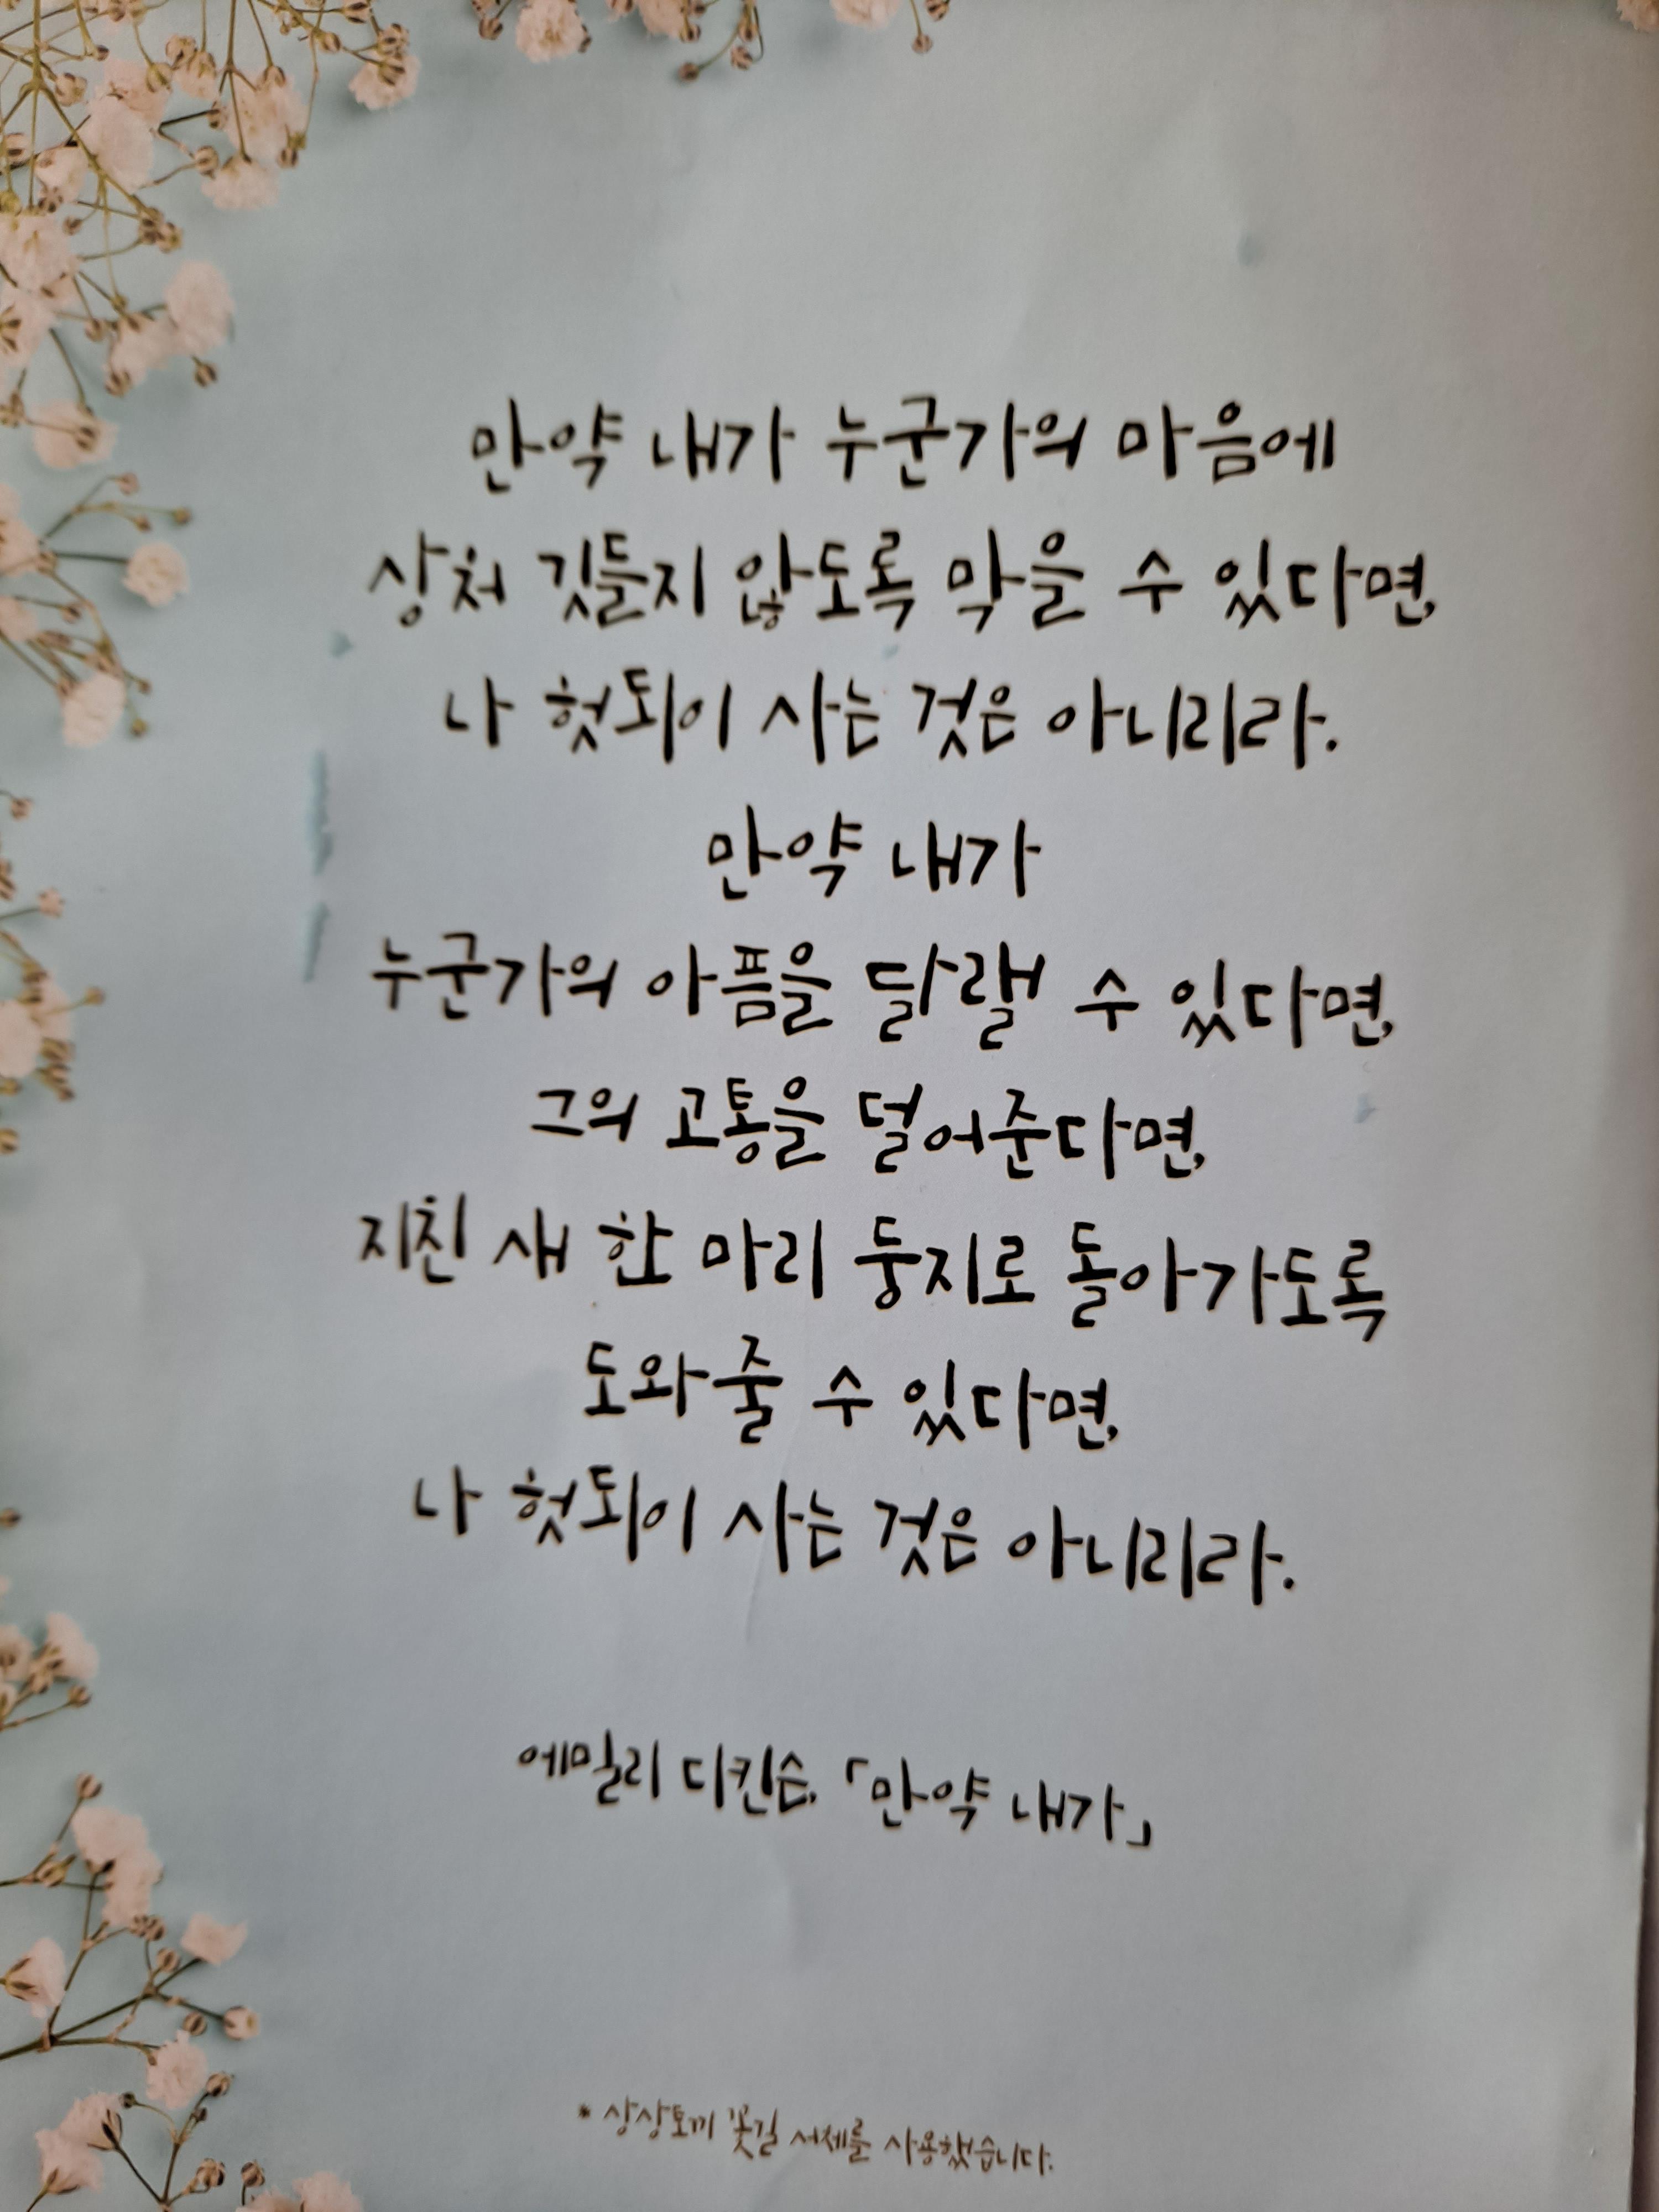 만약 내가 누군가의 마음에
상처 깃들지 않도록 막을 수 있다면,
나 헛되이 사는 것은 아니리라.
만약 내가
누군가의 아픔을 달랠 수 있다면,
그의 고통을 덜어준다면,
지친 새 한 마리 둥지로 돌아가도록
도와줄 수 있다면,
나 헛되이 사는 것은 아니리라.
에밀리 디킨슨, 「만약 내가」
* 상상토끼 꽃길 서체를 사용했습니다.